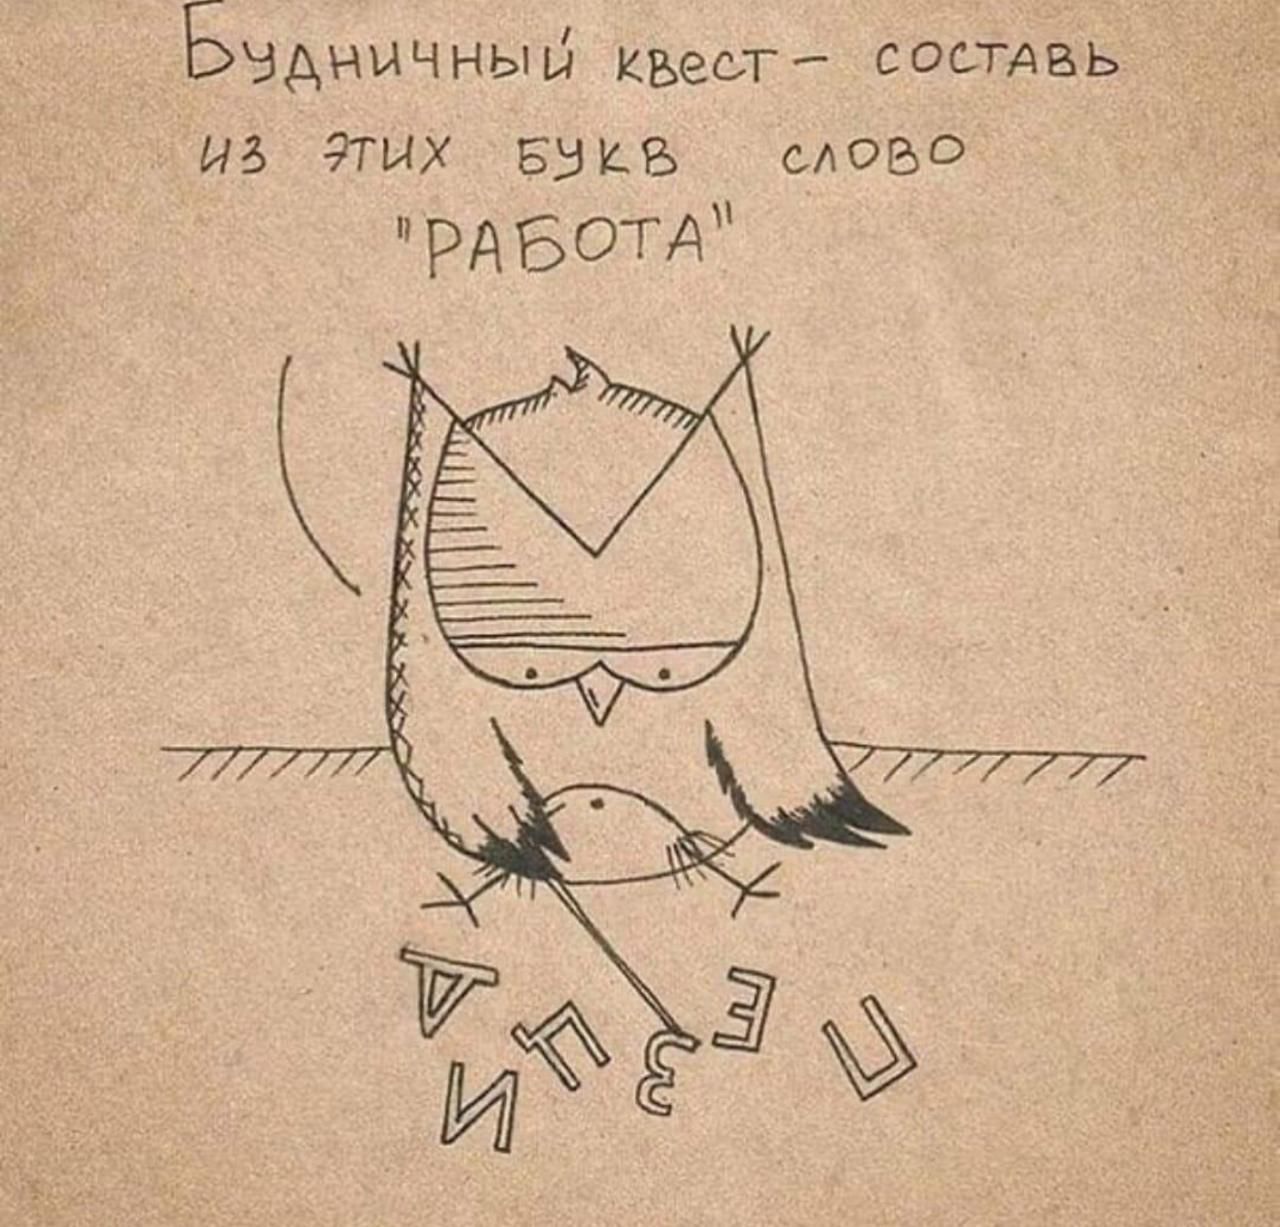 Будничный квест - составь
из этих букв слово
"РАБОТА"
Д Ц З Е П
И